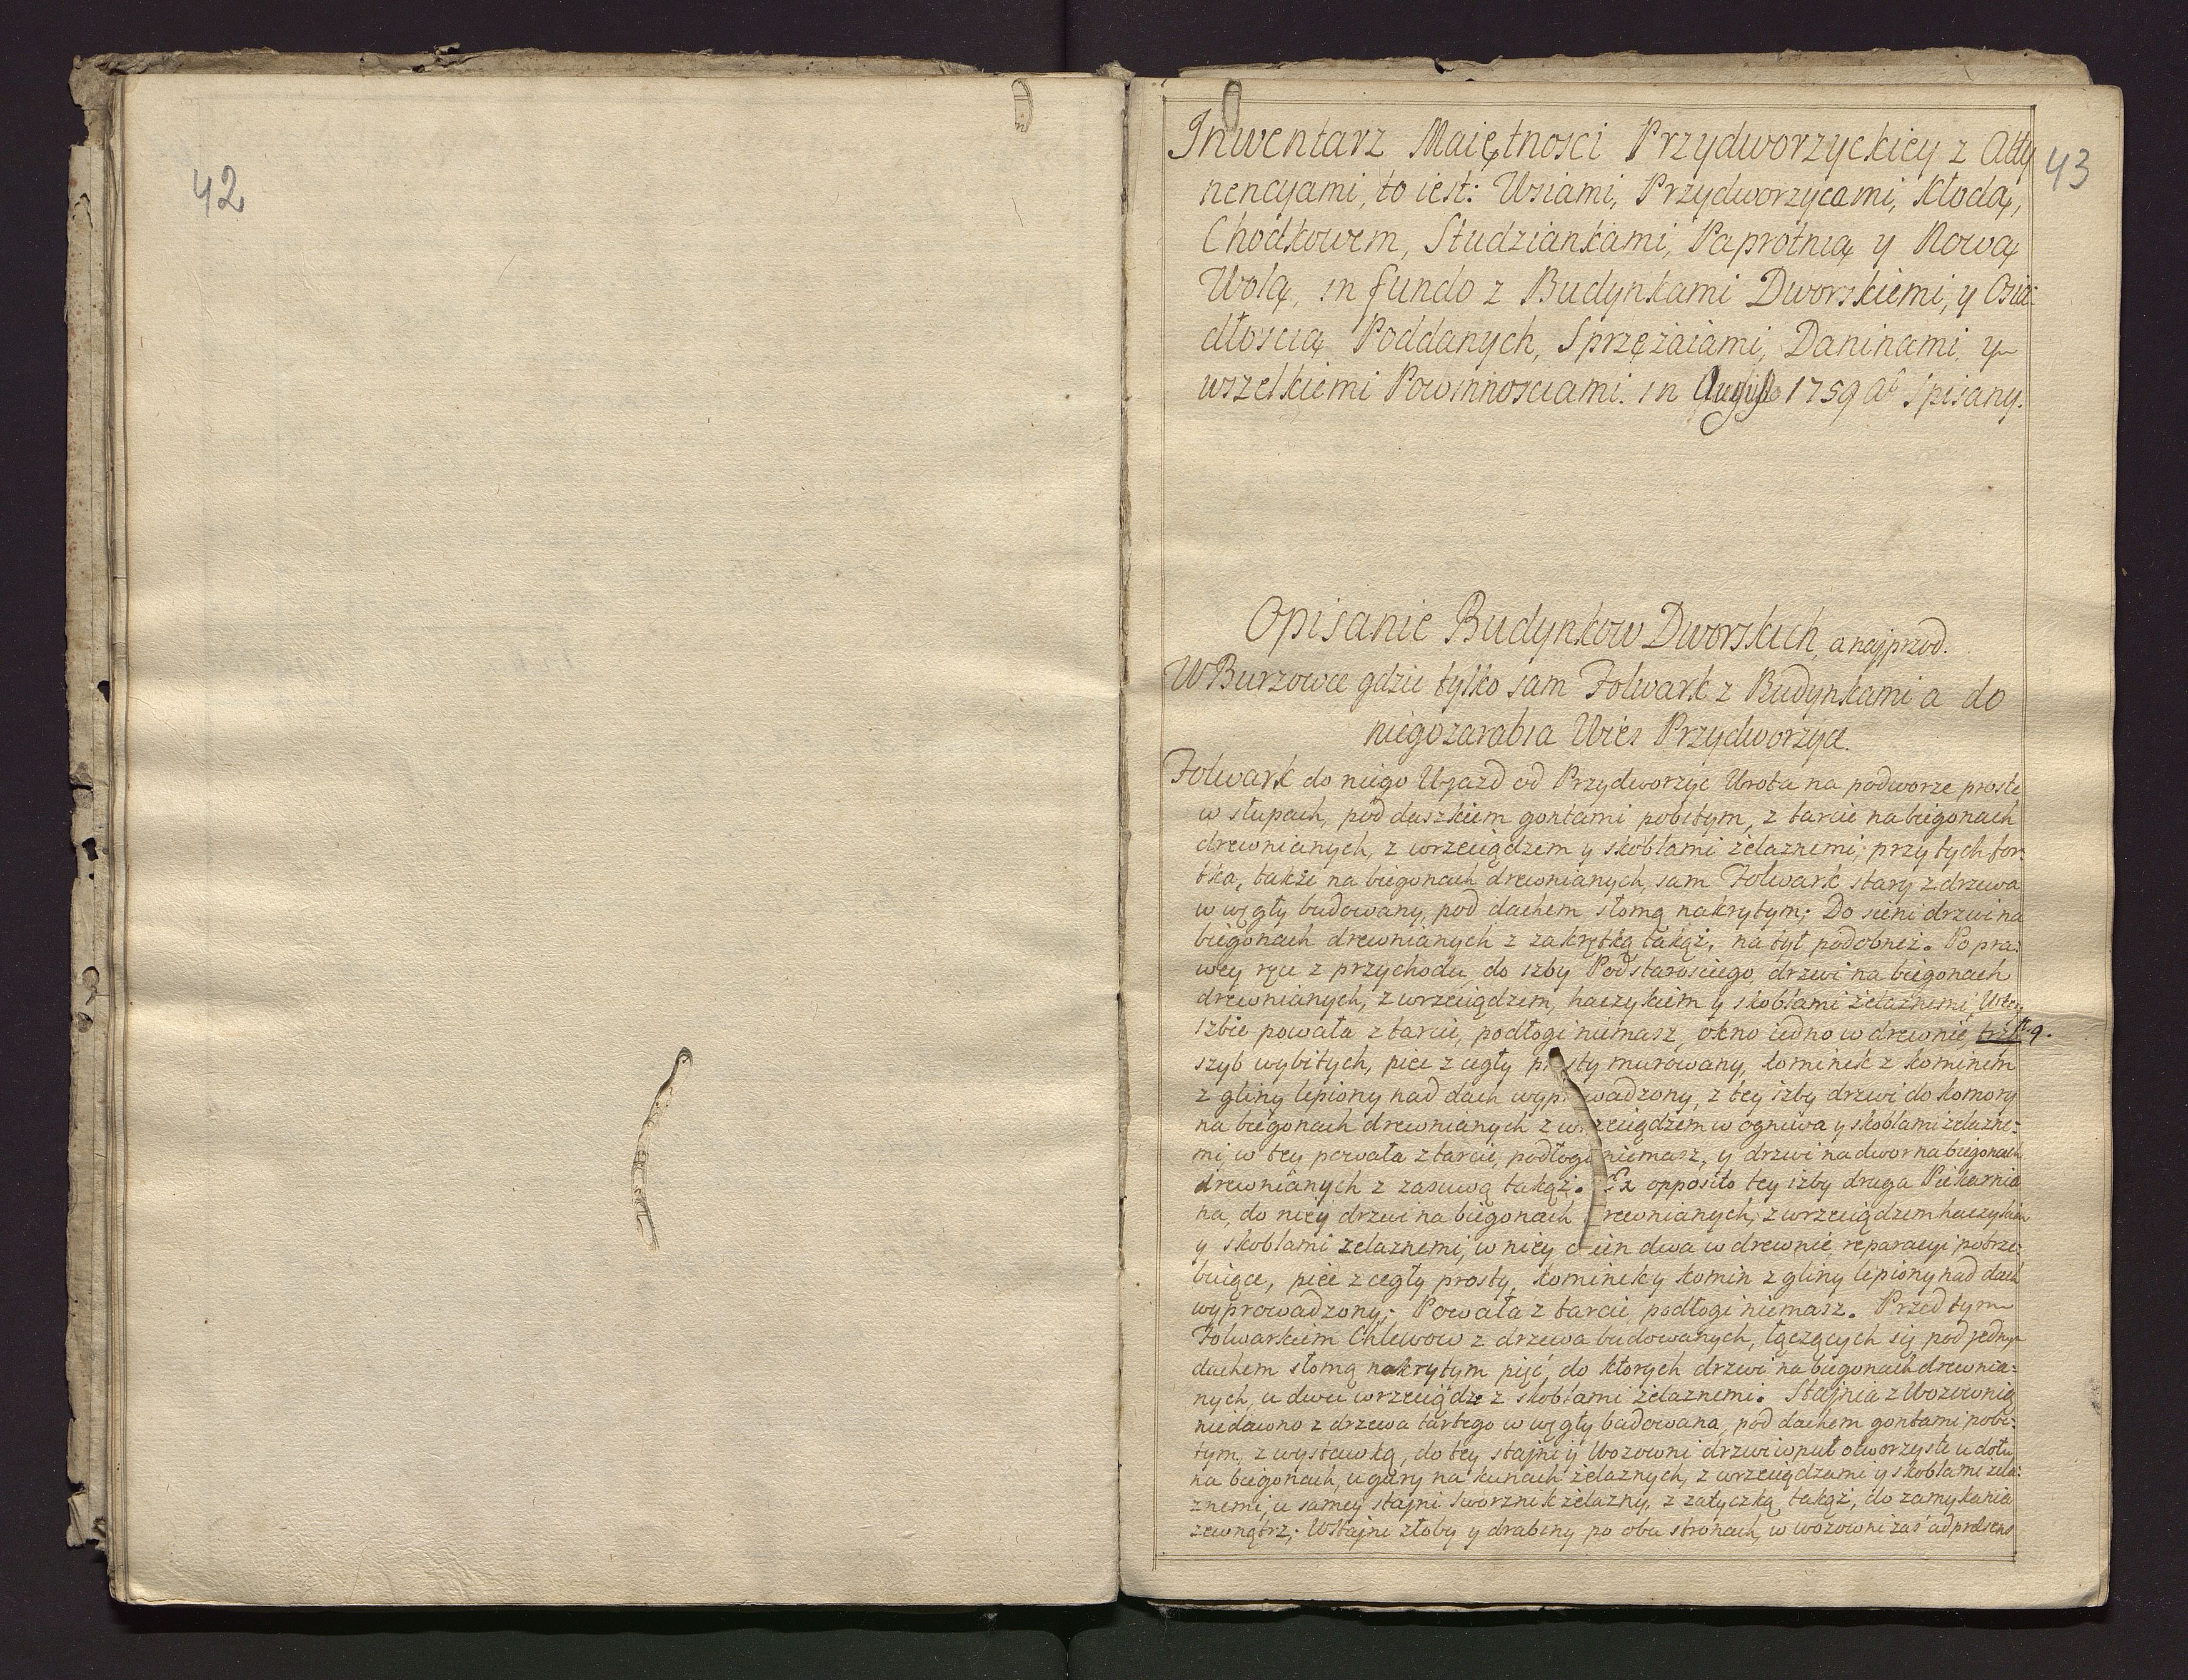 42
43
Inwentarz Maiętnosci Przydworzyckiey z Atty
nencyami, to iest: Wsiami, Przydworzycami, Kłodą,
Chodkowem, Studziankami, Paprotnią y Nową
Wolą, in fundo z Budynkami Dworskiemi, y Osia:
dłoscią Poddanych, Sprzężaiami, Daninami y
wszelkiemi Powinnosciami. in Augusto 1759 Ao Spisany.
Opisanie Budynkow Dworskich, a najprzod.
W Burzowce gdzie tylko sam Folwark z Budynkami a do
niego zarabia Wies Przydworzyce.
Folwark do niego Wjazd od Przydworzyc Wrota na podworze proste
w słupach, pod daszkiem gontami pobitym, z tarcic na biegonach
drewnianych, z wrzeciądzem y skoblami żelaznemi; przy tych for:
tka, także na biegonach drewnianych, sam Folwark stary z drzewa
w węgły budowany, pod dachem słomą nakrytym; Do sieni drzwi na
biegonach drewnianych z zakrętką takąż, na tył podobnież. Po pra:
wey ręce z przychodu do izby Podstarosciego drzwi na biegonach
drewnianych, z wrzeciądzem, haczykiem y skoblami żelaznemi, W tey
izbie powała z tarcic, podłogi niemasz, okno iedno w drewnie, 9.
szyb wybitych, piec z cegły p sty murowany, kominek z kominem
z gliny lepiony nad dach wyp wadzony, z tey izby drzwi do komory
na biegonach drewnianych z w zeciądzem w ogniwa y skoblami żelazne:
mi, w tey powała z tarcic, podłogi niemasz, y drzwi na dwor na biegonach
drewnianych z zasuwą takąż. Ex opposito tey izby druga Piekarnia
na, do niey drzwi na biegonach rewnianych, z wrzeciądzem haczykiem
y skoblami żelaznemi, w niey o ien dwa w drewnie, reparacyi potrze:
buiące, piec z cegły prosty, kominek y komin z gliny lepiony nad dach
wyprowadzony; Powała z tarcic, podłogi niemasz. Przed tym
Folwarkiem Chlewow z drzewa budowanych, łączących się pod jednym
dachem słomą nakrytym pięć, do ktorych drzwi na biegonach drewnia:
nych, u dwu wrzeciądze z skoblami żelaznemi. Stajnia z Wozownią
niedawno z drzewa tartego w węgły budowana, pod dachem gontami pobi:
tym, z wystawką, do tey stajni y Wozowni drzwi wpuł otworzyste u dołu
na biegonach, u gury na kunach żelaznych, z wrzeciądzami y skoblami żela:
znemi, u samey stajni sworznik żelazny, z zatyczką takąż, do zamykania
zewnątrz; W Stajni złoby y drabiny po obu stronach, w wozowni zaś ad præsens